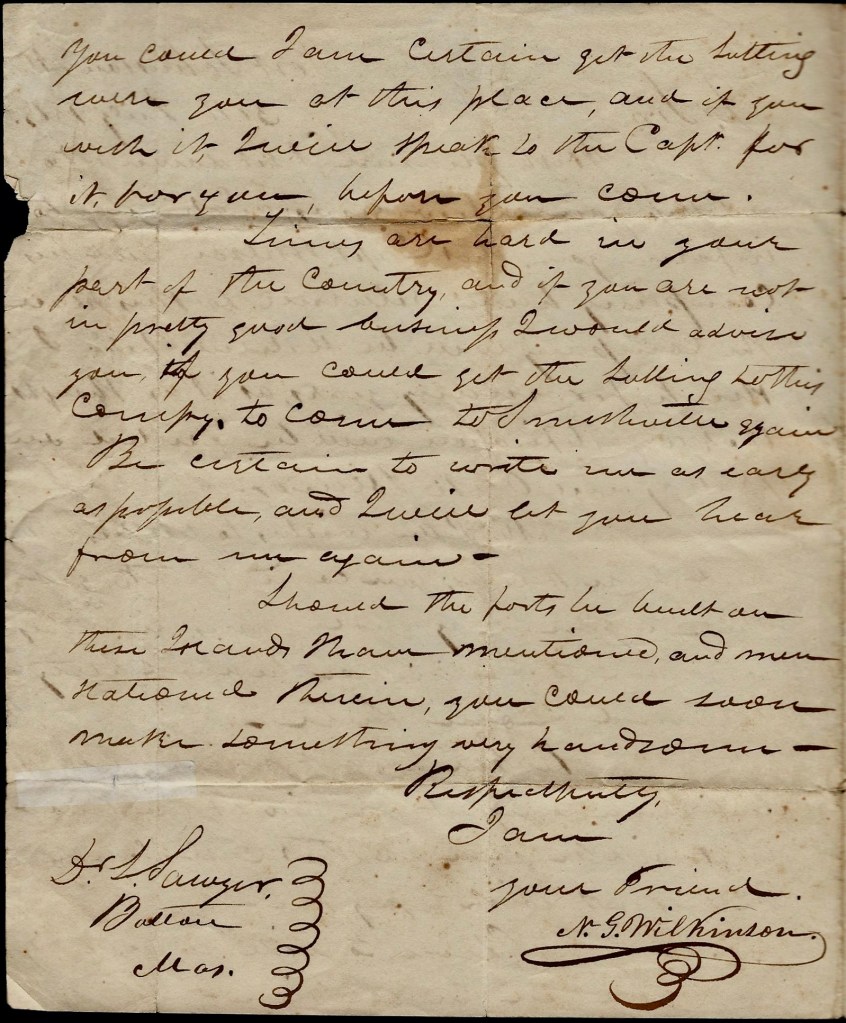 You could I am certain get the Sutling
were you at this place, and if you
wish it, I will speak to the Capt. for
it, for you, before you come.
Times are hard in your
part of the Country, and if you are not
in pretty good business I would advise
you, if you could get the Sutling to this
Compy. to come to Smithville again
Be certain to write me as early
as possible, and I will let you hear
from me again —
Should the forts be built on
these Islands I have mentioned, and men
stationed therein, you could soon
make something very handsome —
Respectfully,
I am
your Friend.
N. G. Wilkinson.
Dr. L. Sawyer,
Bolton
Mas.